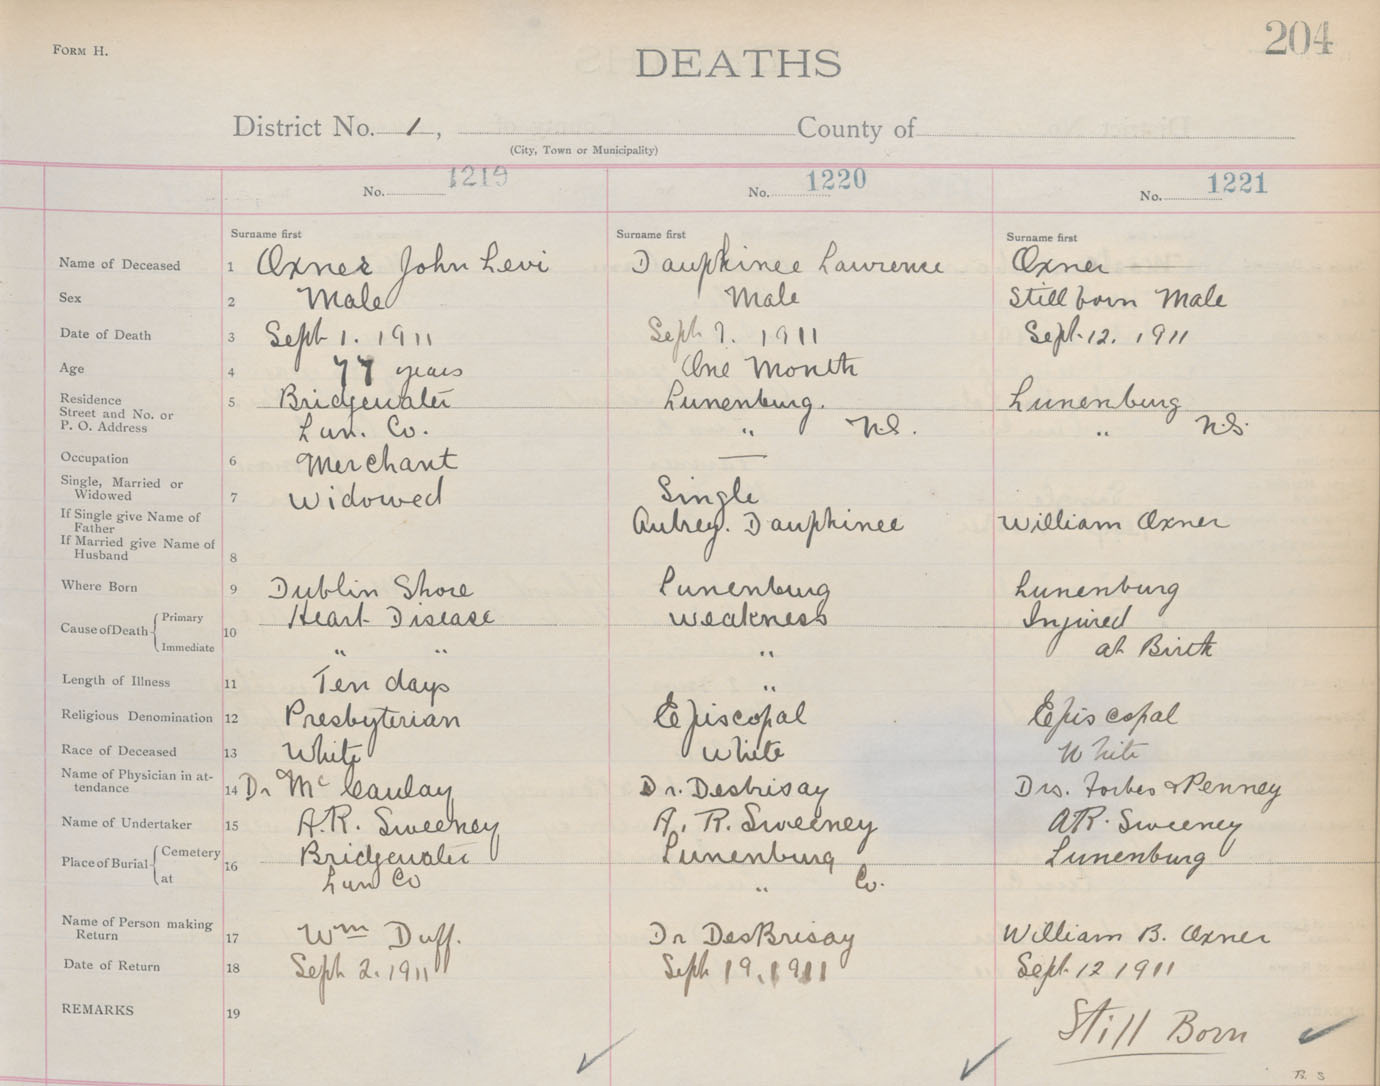 204
FORM H.
DEATHS
District No. 1, County of
(City, Town or Municipality)
No. 1219 No. 1220 No. 1221
Surname first Surname first Surname first
Name of Deceased 1 Oxner John Levi Dauphinee Lawrence Oxner
Sex 2 Male Male Stillborn Male
Date of Death 3 Sept 1. 1911 Sept 7. 1911 Sept. 12. 1911
Age 4 77 years One Month
Residence 5 Bridgewater Lunenburg. Lunenburg
Street and No. or
P. O. Address Lun. Co. " N.S. " N.S.
Occupation 6 Merchant —
Single, Married or
Widowed 7 Widowed Single
If Single give Name of
Father Aubrey. Dauphinee William Oxner
If Married give Name of
Husband 8
Where Born 9 Dublin Shore Lunenburg Lunenburg
Cause of Death { Primary 10 Heart Disease Weakness Injured
Immediate " " " at Birth
Length of Illness 11 Ten days "
Religious Denomination 12 Presbyterian Episcopal Episcopal
Race of Deceased 13 White White White
Name of Physician in at-
tendance 14 Dr McCaulay Dr. Desbrisay Drs. Forbes & Penney
Name of Undertaker 15 A.R. Sweeney A. R. Sweeney AR. Sweeney
Place of Burial { Cemetery 16 Bridgewater Lunenburg Lunenburg
at Lun Co " Co.
Name of Person making
Return 17 Wm Duff. Dr DesBrisay William B. Oxner
Date of Return 18 Sept 2. 1911 Sept 19. 1911 Sept 12 1911
REMARKS 19 Still Born
B. S